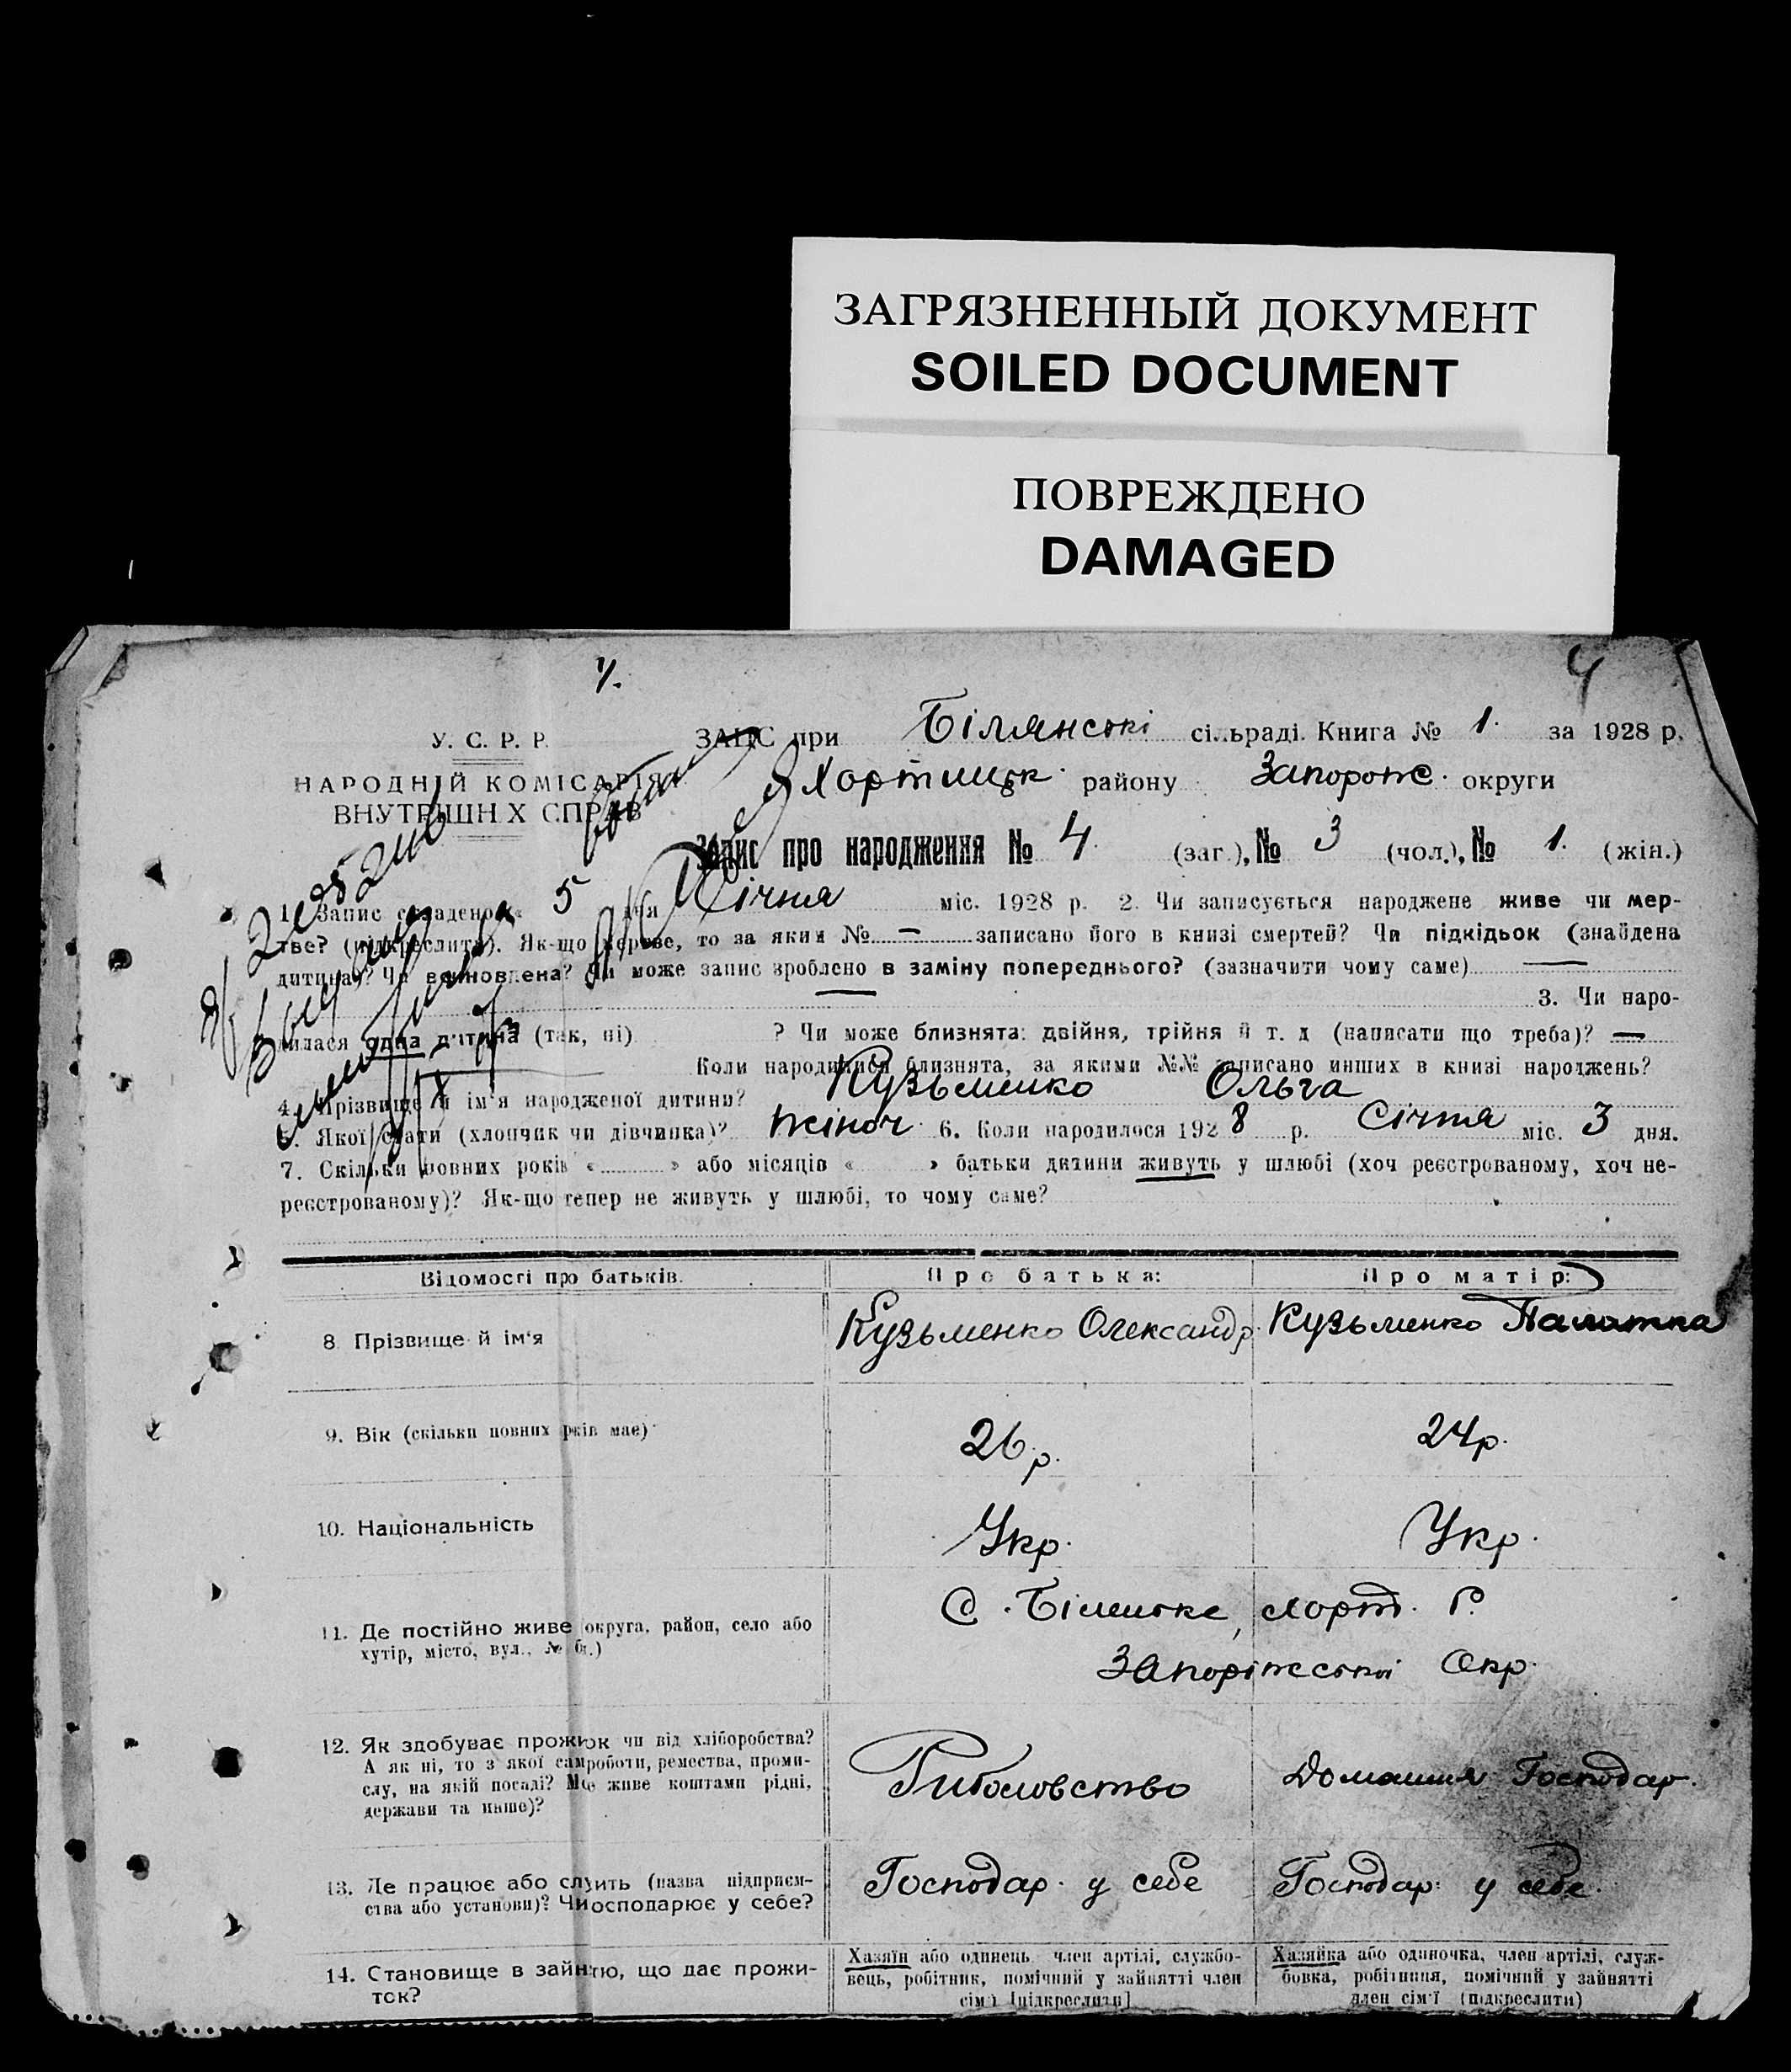 ЗАГРЯЗНЕННЫЙ ДОКУМЕНТ
SOILED DOCUMENT
ПОВРЕЖДЕНО
DAMAGED
1. 4
У. С. Р. Р.
НАРОДНІЙ КОМІСАРІЯТ
ВНУТРІШНІХ СПРАВ
ЗАПС при Білянські сільраді. Книга № 1. за 1928 р.
Хортицьк. району Запорож. округи
Запис про народження № 4. (заг.), № 3 (чол.), № 1. (жін.)
1. Запис складено « 5 дня Січня міс. 1928 р. 2. Чи записується народжене живе чи мер-
тве? (підкреслити). Як-що мертве, то за яким № — записано його в книзі смертей? Чи підкідьок (знайдена
дитина)? Чи вспновлена? Чи може запис зроблено в заміну попереднього? (зазначити чому саме) —
3. Чи наро-
дилася одна дитина (так, ні) ? Чи може близнята: двійня, трійня й т. д (написати що треба)? —
Коли народилися близнята, за якими №№ записано инших в книзі народжень?
4. Прізвище й ім'я народженої дитини? Кузьменко Ольга
5. Якої стати (хлопчик чи дівчинка)? жіноч. 6. Коли народилося 1928 р. Січня міс. 3 дня.
7. Скільки повних років « » або місяців « » батьки дитини живуть у шлюбі (хоч реєстрованому, хоч не-
реєстрованому)? Як-що тепер не живуть у шлюбі, то чому саме?
Відомості про батьків. Про батька: Про матір:
8 Прізвище й ім'я Кузьменко Олександр. Кузьменко
9. Вік (скільки повних рків має) 26 р. 24 р.
10. Національність Укр. Укр.
11. Де постійно живе округа, район, село або
хутір, місто, вул., № б.)
С. Біленьке, Хорт. Р.
Запоріжської Окр.
12. Як здобуває прожиок чи від хліборобства?
А як ні, то з якої самроботи, ремества, проми-
слу, на якій посаді? Мое живе коштами рідні,
держави та инше)?
Риболовство Домашня Господар.
13. Де працює або служить (назва підприєм-
ства або установи)? Чи осподарює у себе?
Господар. у себе Господар. у себе.
14. Становище в занятю, що дає прожи-
ток?
Хазяїн або одинець, член артілі, службо-
вець, робітник, помічний у зайнятті член
сім'ї [підкреслити]
Хазяйка або одиночка, член артілі, служ-
бовка, робітниця, помічний у зайнятті
член сім'ї (підкреслити)